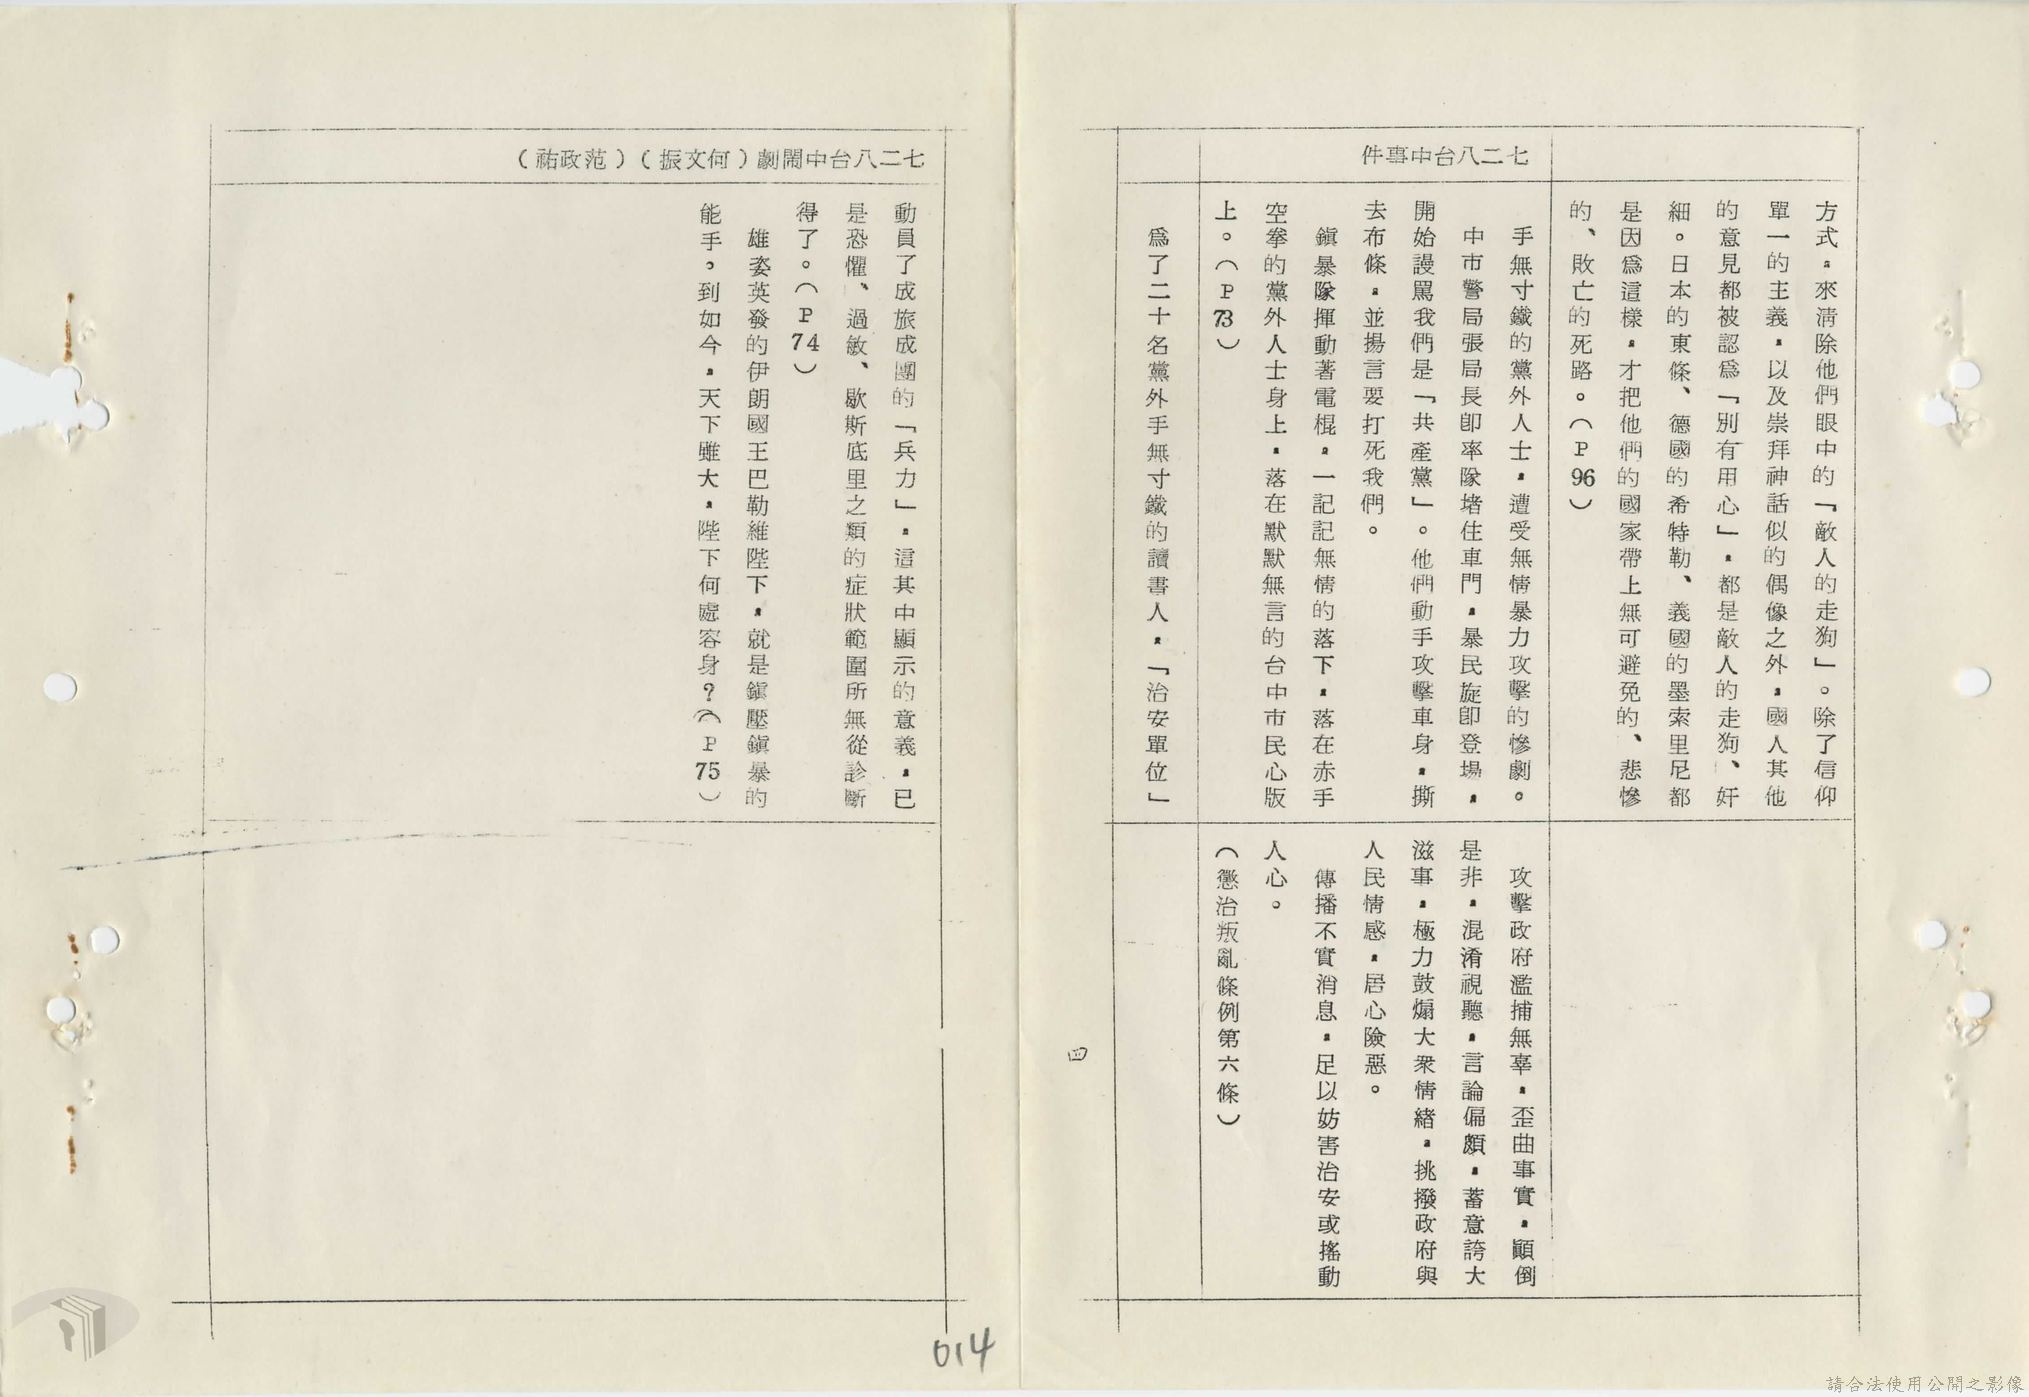 方式，來淸除他們眼中的「敵人的走狗」。除了信仰
單一的主義，以及崇拜神話似的偶像之外，國人其他
的意見都被認爲「別有用心」，都是敵人的走狗、奸
細。日本的東條、德國的希特勒、義國的墨索里尼都
是因爲這樣，才把他們的國家帶上無可避免的、悲慘
的、敗亡的死路。（P96）
七二八台中事件
手無寸鐵的黨外人士，遭受無情暴力攻擊的慘劇。
中市警局張局長卽率隊堵住車門，暴民旋卽登場，
開始謾罵我們是「共產黨」。他們動手攻擊車身，撕
去布條，並揚言要打死我們。
鎭暴隊揮動著電棍，一記記無情的落下，落在赤手
空拳的黨外人士身上，落在默默無言的台中市民心版
上。（P73）
攻擊政府濫捕無辜，歪曲事實，顚倒
是非，混淆視聽，言論偏頗，蓄意誇大
滋事，極力鼓煽大衆情緒，挑撥政府與
人民情感，居心險惡。
傳播不實消息，足以妨害治安或搖動
人心。
（懲治叛亂條例第六條）
爲了二十名黨外手無寸鐵的讀書人，「治安單位」
四
七二八台中鬧劇（何文振）（范政祐）
動員了成旅成團的「兵力」，這其中顯示的意義，已
是恐懼、過敏、歇斯底里之類的症狀範圍所無從診斷
得了。（P74）
雄姿英發的伊朗國王巴勒維陛下，就是鎭壓鎭暴的
能手。到如今，天下雖大，陛下何處容身？（P75）
014
請合法使用公開之影像